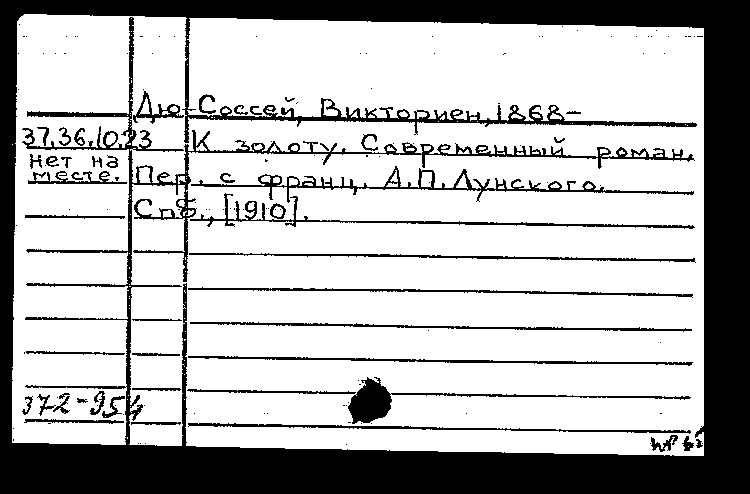 Дю-Соссей, Викториен, 1868-
37.36.10.23 К золоту. Современный роман.
Нет на месте. Пер. с франц. А.П.Лунского.
Спб., [1910].
372-954